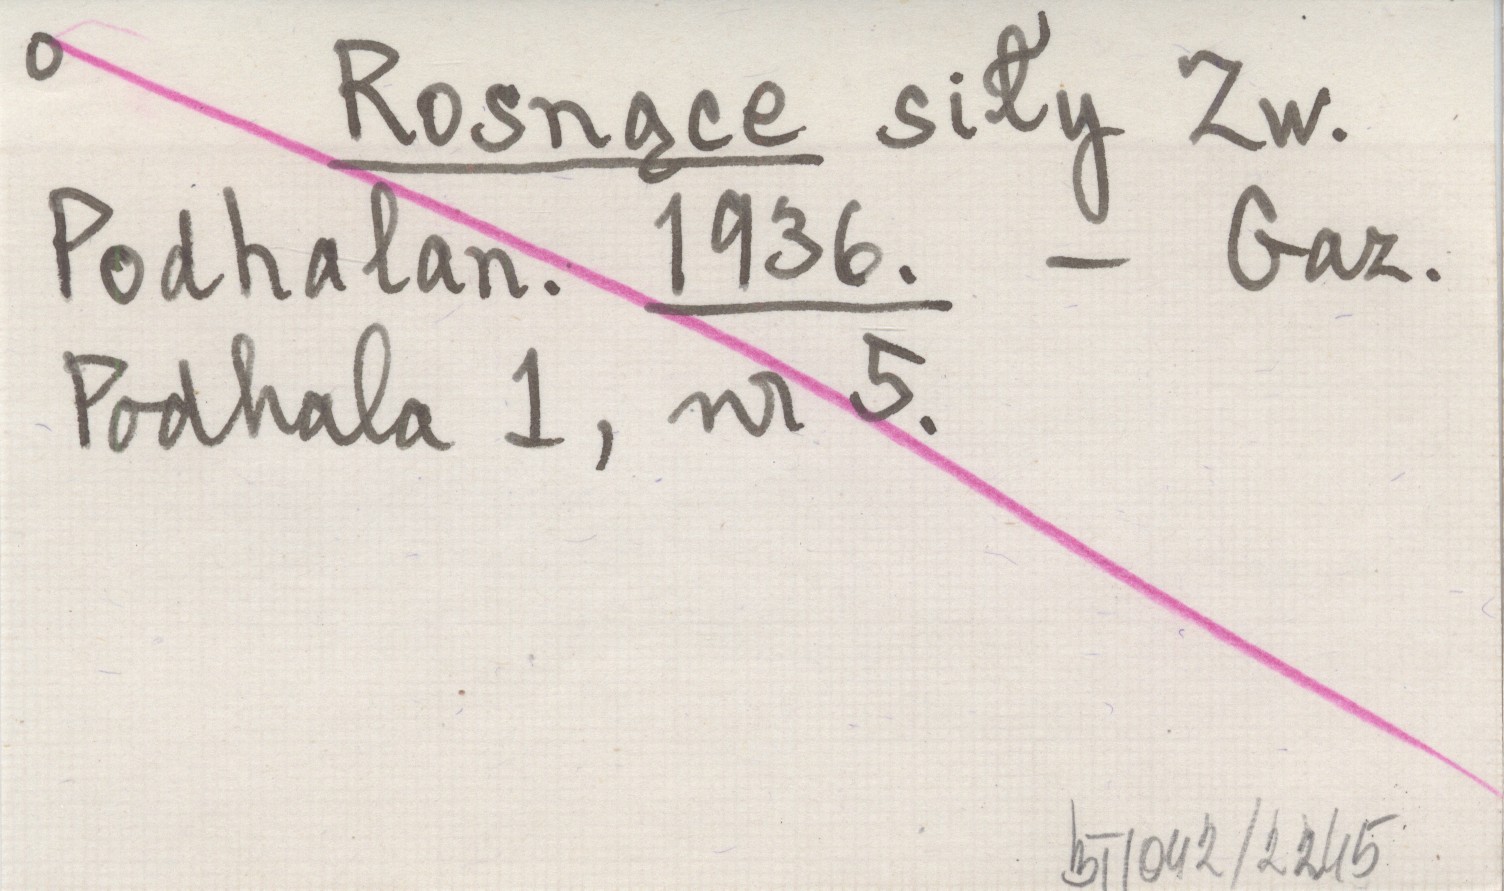 o Rosnące siły Zw.
Podhalan. 1936. – Gaz.
Podhala 1, nr 5.